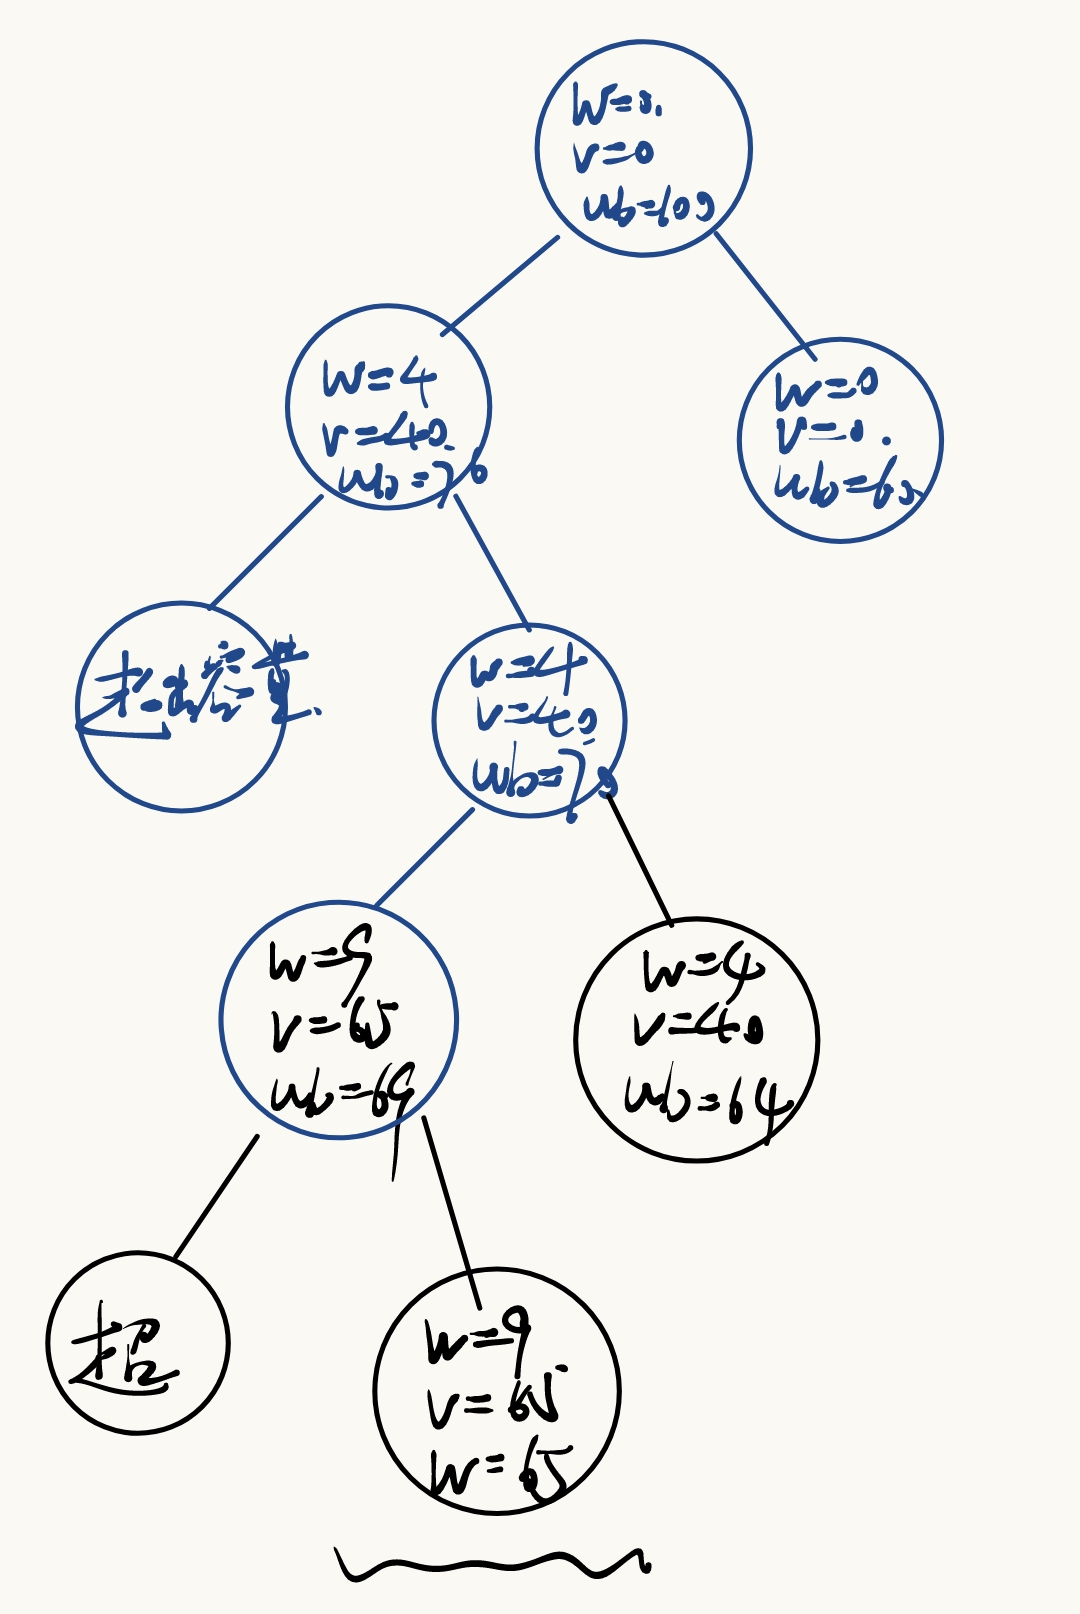 W=0.
v=0
ub=100
W=4
v=40.
ub=76
W=0
V=0.
ub=60
超出容量.
w=4
v=40
ub=70
w=9
v=65
ub=69
w=4
v=40
ub=64
超
w=9
v=65
W=65